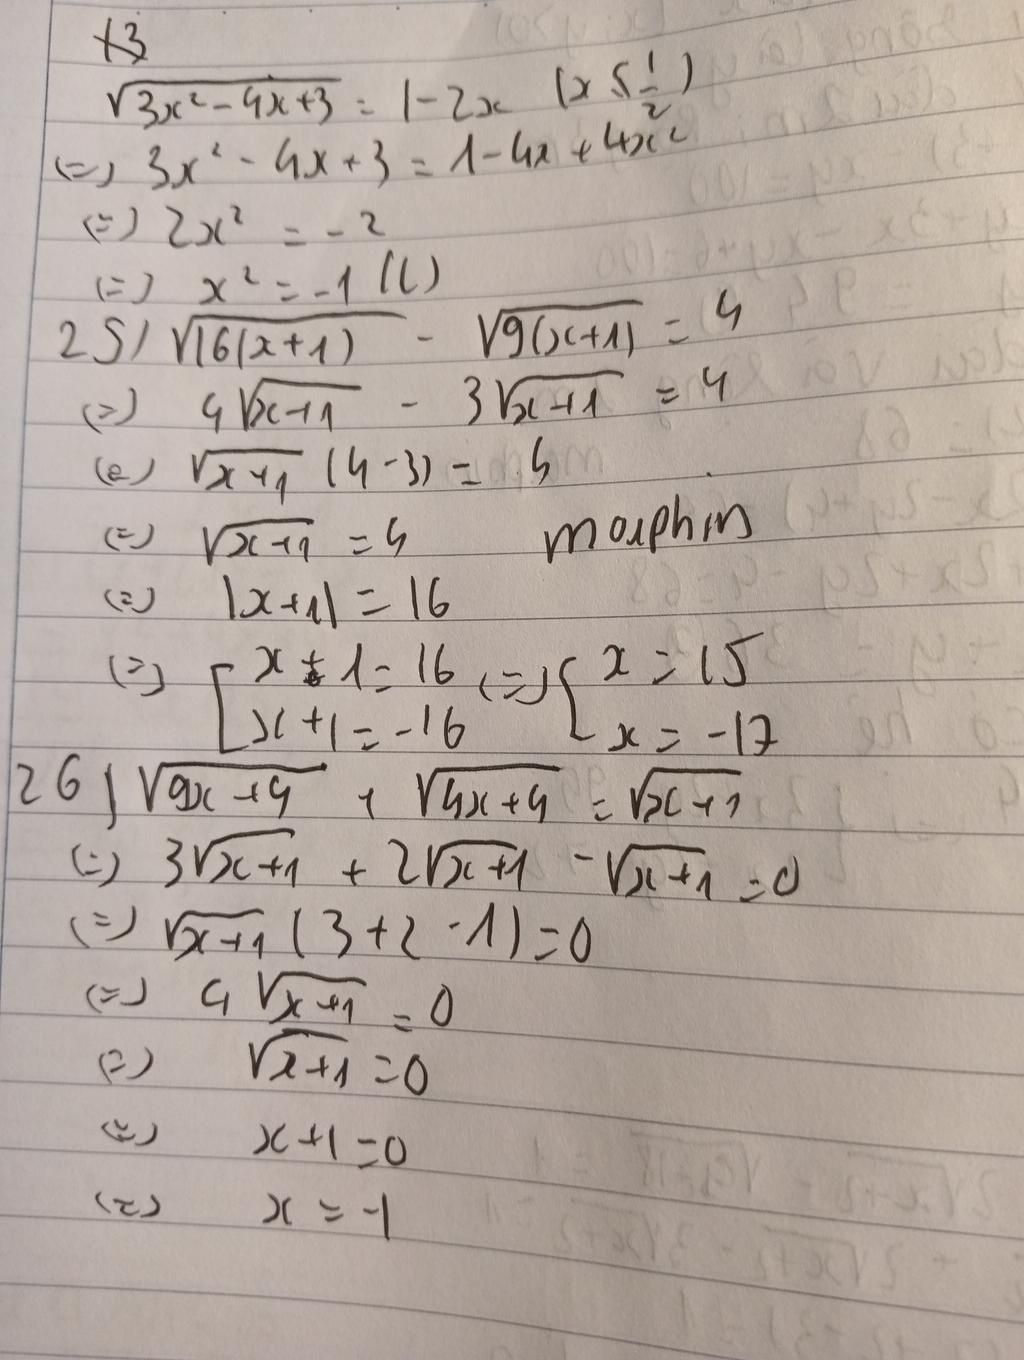 +3
√(3x² - 4x + 3) = 1 - 2x (x ≤ 1/2)
(=) 3x² - 4x + 3 = 1 - 4x + 4x²
(=) 2x² = -2
(=) x² = -1 (L)
25) √(16(x+1)) - √(9(x+1)) = 4
(=) 4√(x+1) - 3√(x+1) = 4
(=) √(x+1) (4-3) = 4
(=) √(x+1) = 4 morphin
(=) |x+1| = 16
(=) [ x + 1 = 16 (=) { x = 15
x + 1 = -16 x = -17
26) √(9x+9) + √(4x+4) = √(x+1)
(=) 3√(x+1) + 2√(x+1) - √(x+1) = 0
(=) √(x+1) (3+2-1) = 0
(=) 4√(x+1) = 0
(=) √(x+1) = 0
(=) x+1 = 0
(=) x = -1